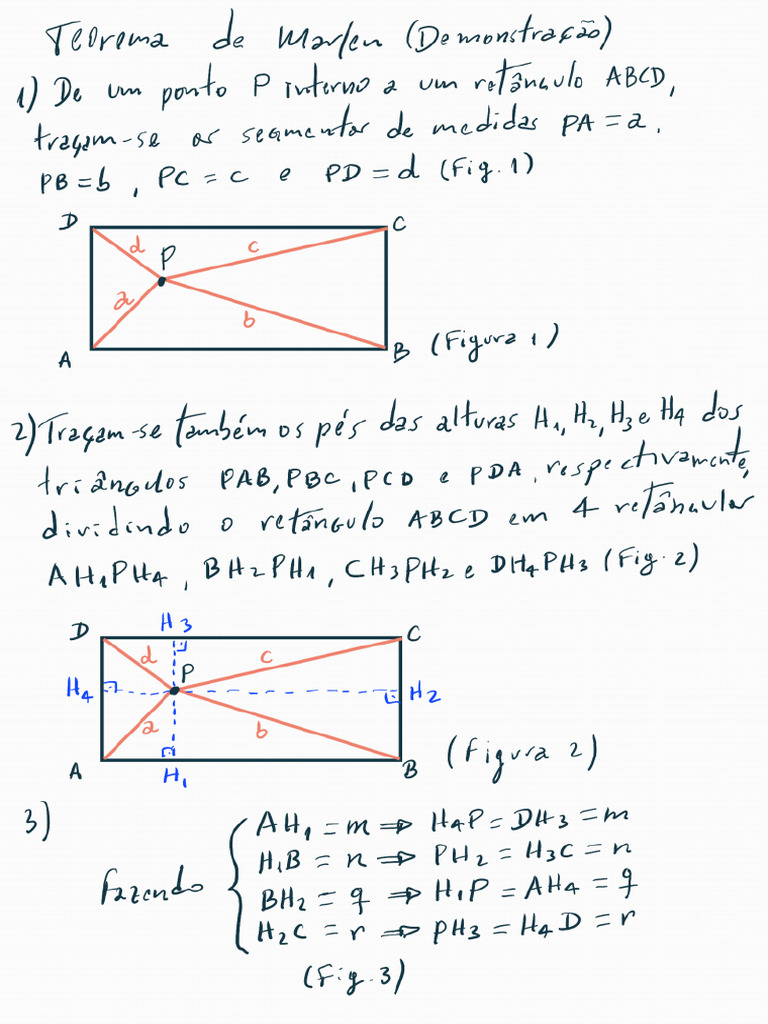 Teorema de Marlen (Demonstração)
1) De um ponto P interno a um retângulo ABCD,
traçam-se os segmentos de medidas PA = a,
PB = b, PC = c e PD = d (Fig. 1)
D C
d P c
a b
A B (Figura 1)
2) Traçam-se também os pés das alturas H1, H2, H3 e H4 dos
triângulos PAB, PBC, PCD e PDA, respectivamente,
dividindo o retângulo ABCD em 4 retângulos
AH1PH4, BH2PH1, CH3PH2 e DH4PH3 (Fig. 2)
D H3 C
d P c
H4 H2
a b
A H1 B (Figura 2)
3)
AH1 = m ⇒ H4P = DH3 = m
H1B = n ⇒ PH2 = H3C = n
Fazendo
BH2 = q ⇒ H1P = AH4 = q
H2C = r ⇒ PH3 = H4D = r
(Fig. 3)